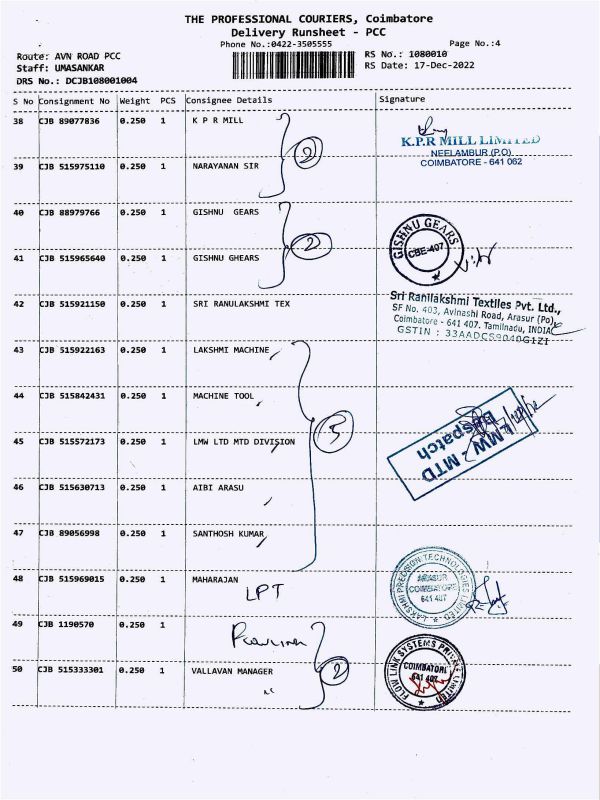 THE PROFESSIONAL COURIERS, Coimbatore
Delivery Runsheet - PCC
Phone No.:0422-3505555
Page No.:4
Route: AVN ROAD PCC
RS No.: 1080010
Staff: UMASANKAR
RS Date: 17-Dec-2022
DRS No.: DCJB108001004
S No Consignment No Weight PCS Consignee Details Signature
38 CJB 89077836 0.250 1 K P R MILL
2
K.P.R MILL LIMITED
NEELAMBUR (P.O)
COIMBATORE - 641 062
39 CJB 515975110 0.250 1 NARAYANAN SIR
40 CJB 88979766 0.250 1 GISHNU GEARS
2
GISHNU GEARS
CBE-407
41 CJB 515965640 0.250 1 GISHNU GHEARS
42 CJB 515921150 0.250 1 SRI RANULAKSHMI TEX
Sri Ranilakshmi Textiles Pvt. Ltd.,
SF No. 403, Avinashi Road, Arasur (Po),
Coimbatore - 641 407. Tamilnadu, INDIA
GSTIN : 33AADCS9040G1ZI
43 CJB 515922163 0.250 1 LAKSHMI MACHINE
44 CJB 515842431 0.250 1 MACHINE TOOL
5
LMW - MTD
Despatch
45 CJB 515572173 0.250 1 LMW LTD MTD DIVISION
46 CJB 515630713 0.250 1 AIBI ARASU
47 CJB 89056998 0.250 1 SANTHOSH KUMAR
48 CJB 515969015 0.250 1 MAHARAJAN
LPT
LAKSHMI PRECISION TECHNOLOGIES LIMITED
ARASUR
COIMBATORE
641 407
49 CJB 1190570 0.250 1
2
FLOW LINK SYSTEMS PRIVATE LIMITED
COIMBATORE
641 407
50 CJB 515333301 0.250 1 VALLAVAN MANAGER